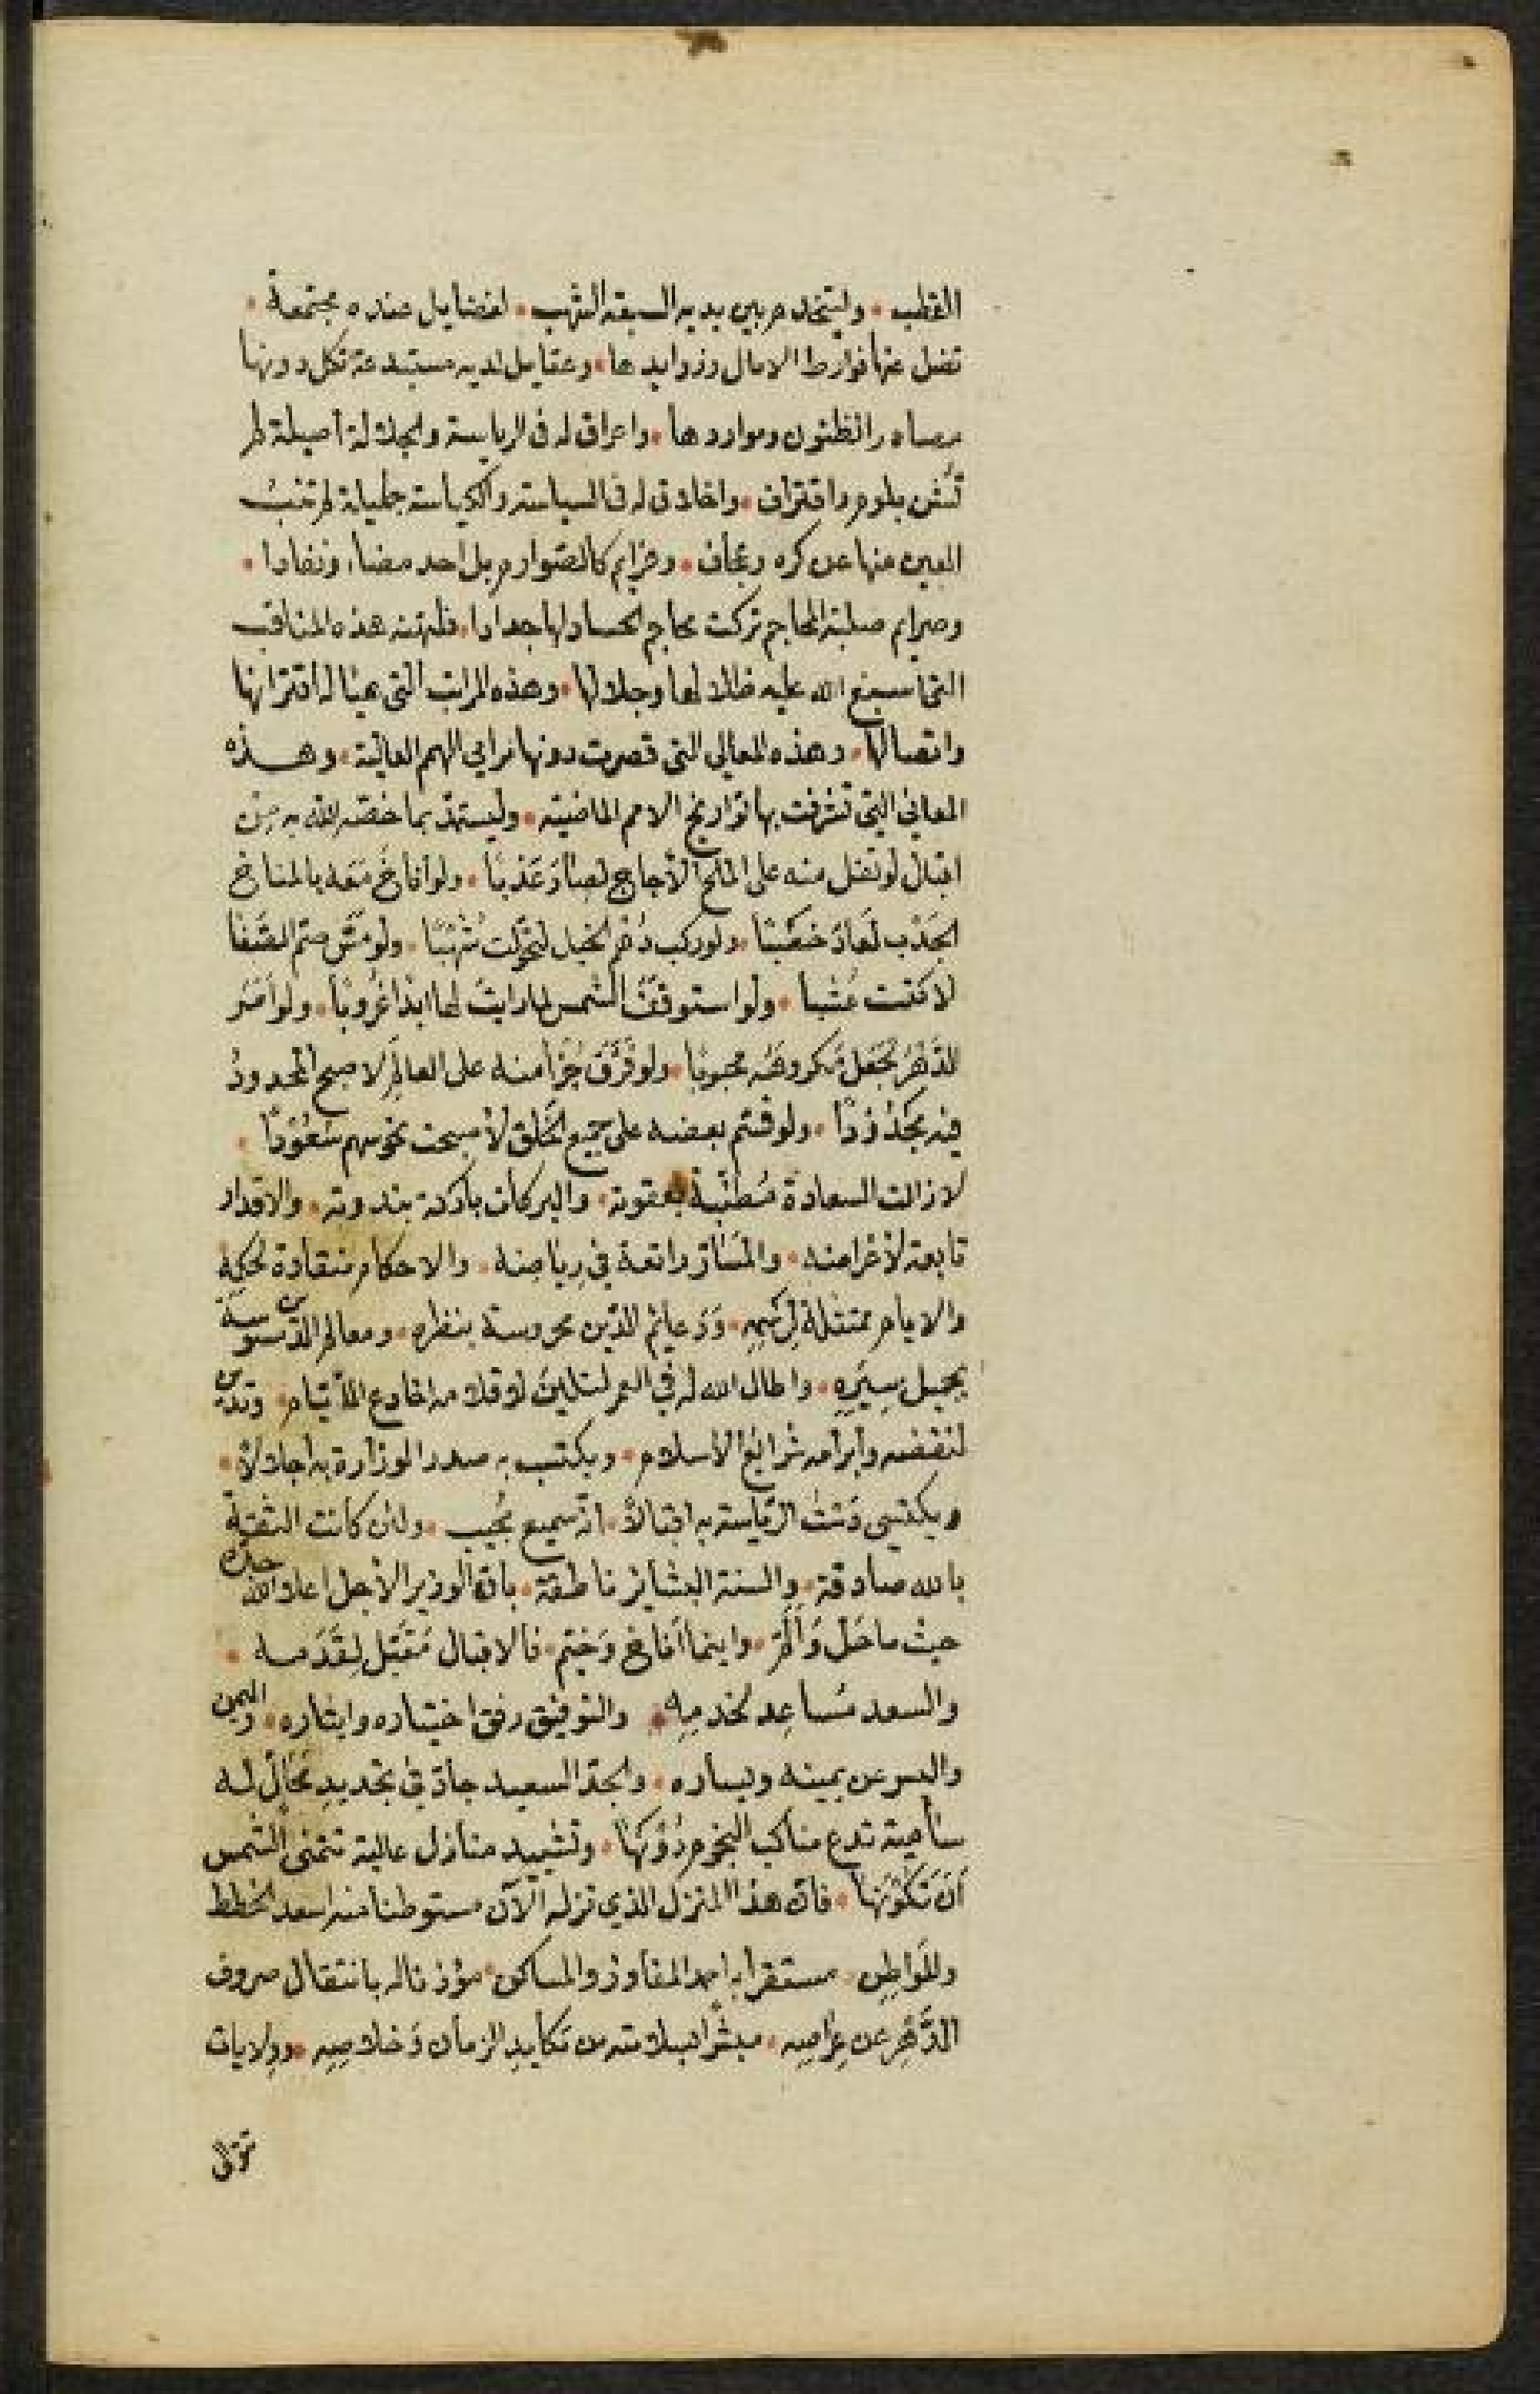 القطب • وليتخدم بين يديه السبعة الشهب • لفضايل عنده مجتمعة •
تضل عنها فوارط الامال وزوايدها • وعقايل لديه مستبدعة تكل دونها
مصادر الظنون ومواردها • واعراق له في الرياسة والجلالة أصيلة لم
تُشَن بلوم واقتراف • واخلاق له في السياسة والكياسة جليلة لم تغب
العين عنها عن كره وتجاف • وعزايم كالصوارم بل احد مضاء ونفاذا •
وصرايم صلبة المعاجم تركت معاجم الحساد لها جدادا • فلتهنه هذه المناقب
التي اسبغ الله عليه ظلالها وجلالها • وهذه المراتب التي هيا له اقترانها
واتصالها • وهذه المعالي التي قصرت دونها مرامي الهمم العالية • وهذه
المعاني التي تشرفت بها تواريخ الامم الماضية • وليستمد بما خصّه الله به من
اقبال لو تفل منه على الملح الأجاج لصار عَذبًا • ولو أناخ مَعَه بالمناخ
الجَدْب لَعادَ خصْبًا • ولو ركب دُهْم الخيل لتحوّلت شُهْبًا • ولو مَسّ صم الصَّفا
لاكتست عُشبا • ولو استوقف الشمس لما رايت لها ابدًا غُروبًا • ولو أَمَر
الدَّهْرَ لجَعَل مَكروهَه محبوبًا • ولو فَرَّقَ جُزْأ منه على العالَم لاصبح المحدودُ
فيه مجْدُودًا • ولو قسّم بعضه على جميع الخَلق لأصبحت نحوسهم سُعُودًا •
لا زالت السعادة مُطنّبة بعقوته • والبركات باركة بندوته • والاقدار
تابعة لأغراضه • والمَسَارّ راتعة في رياضه • والاحكام منقادة لحكمِه
والايام ممتثلة لِرَسْمِه • وَدَعائم الدّين محروسة بنظره • ومعالم الدّسوسة
بجميل سِيَرِه • واطال الله له في العمر لتلين لاقلامه اخادع الأيّام • وتدين
لنقضه وابرامه شرائع الاسلام • ويكتسب به صدر الوزارة به اجلالاً •
ويكتسي دَسْتُ الرّياسة به اقبالاً • انّه سميع مُجيب • ولئن كانت الثقة
بالله صادقة • والسنة البشائر ناطقة • بان الوزير الأجل اعلا الله جدّه
حيث ما حَلّ وَأَلَمَّ • واينما أناخ وَخيّم • فالاقبال مُقبَل لِقَدَمه •
والسعد مُساعِد لخدمِه • والتوفيق رفق اختياره وايثاره • واليمن
واليسر عن يمينه ويساره • والجدّ السعيد جادّ في تجديدِ مَحَالّ له
سامية تدع مناكب النجوم دُوْنَهَا • وتشييد منازل عالية تتمنى الشمس
أَنْ تَكُوْنَهَا • فان هذا المنزل الذي نزله الآن مستوطنا منه اسعد الخطط
والمَواطِن • مستقرا به احمد المفاوز والمساكن • مؤذنا له بانتقال صروف
الدَّهْرِ عن عِراصِه • مبشّرا بسلامته من مكايد الزمان وَخلاصِه • وولايات
تتوالى